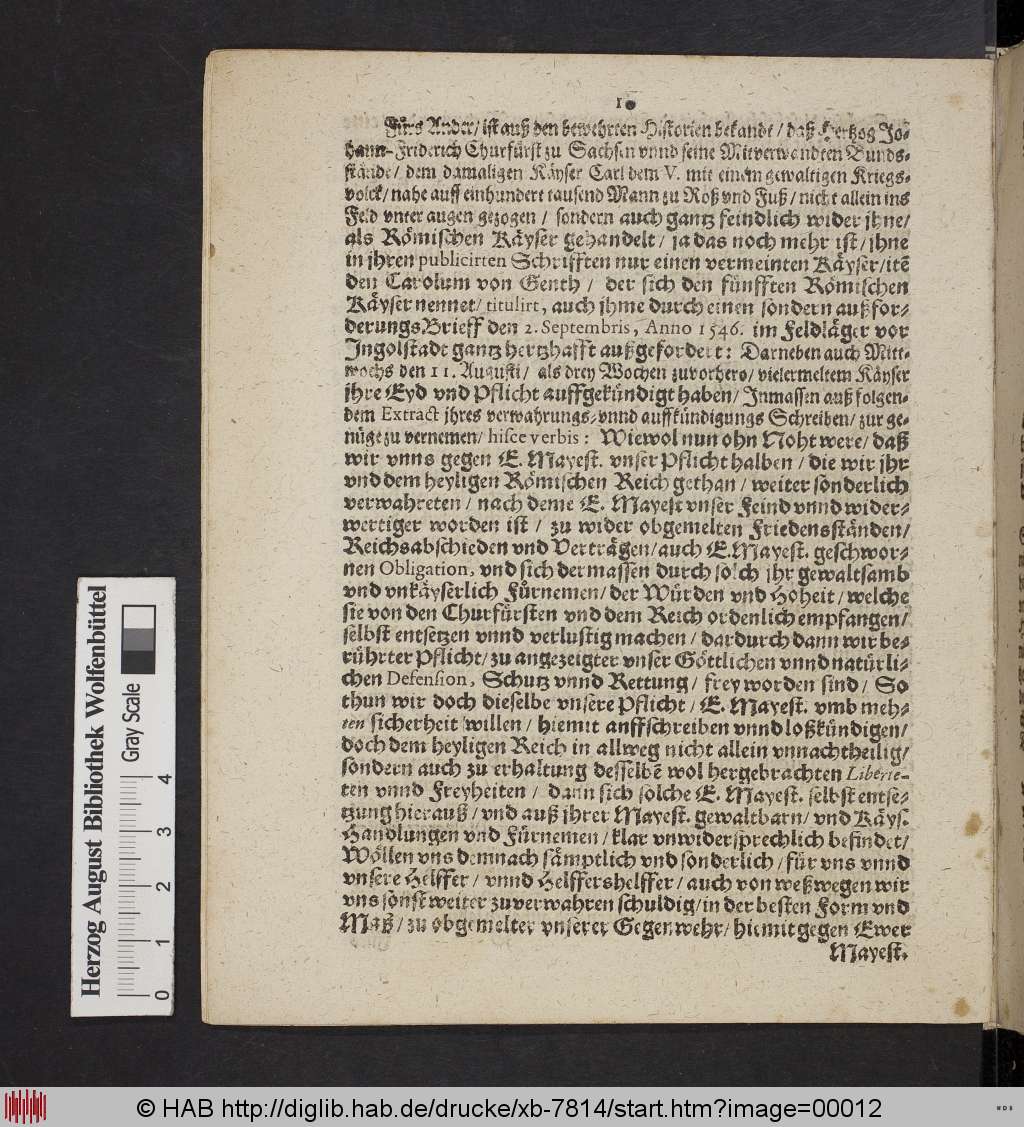 10
Fürs Ander/ ist auß den bewehrten Historien bekandt/ daß Hertzog Jo-
hann-Friderich Churfürst zu Sachsen vnnd seine Mitverwandten Bunds-
stände/ dem damaligen Käyser Carl dem V. mit einem gewaltigen Kriegs-
volck/ nahe auff einhundert tausend Mann zu Roß vnd Fuß/ nicht allein ins
Feld vnter augen gezogen/ sondern auch gantz feindlich wider jhne/
als Römischen Käyser gehandelt/ ja das noch mehr ist/ jhne
in jhren publicirten Schrifften nur einen vermeinten Käyser/ itē
den Carolum von Genth/ der sich den fünfften Römischen
Käyser nennet/ titulirt, auch jhme durch einen sondern außfor-
derungs Brieff den 2. Septembris, Anno 1546. im Feldläger vor
Ingolstadt gantz hertzhafft außgefordert: Darneben auch Mitt-
wochs den 11. Augusti/ als drey Wochen zuvorhero/ vielermeltem Käyser
jhre Eyd vnd Pflicht auffgekündigt haben/ Inmassen auß folgen-
dem Extract jhres verwahrungs- vnnd auffkündigungs Schreiben/ zur ge-
nüge zu vernemen/ hisce verbis: Wiewol nun ohn Noht were/ daß
wir vnns gegen E. Mayest. vnser Pflicht halben/ die wir jhr
vnd dem heyligen Römischen Reich gethan/ weiter sonderlich
verwahreten/ nach deme E. Mayest vnser Feind vnnd wider-
wertiger worden ist/ zu wider obgemelten Friedensständen/
Reichsabschieden vnd Verträgen/ auch E. Mayest. geschwor-
nen Obligation, vnd sich dermassen durch solch jhr gewaltsamb
vnd vnkäyserlich Fürnemen/ der Würden vnd Hoheit/ welche
sie von den Churfürsten vnd dem Reich ordenlich empfangen/
selbst entsetzen vnnd verlustig machen/ dardurch dann wir be-
rührter Pflicht/ zu angezeigter vnser Göttlichen vnnd natürli-
chen Defension, Schutz vnnd Rettung/ frey worden sind/ So
thun wir doch dieselbe vnsere Pflicht/ E. Mayest. vmb meh-
ren sicherheit willen/ hiemit auffschreiben vnnd loßkündigen/
doch dem heyligen Reich in allweg nicht allein vnnachtheilig/
sondern auch zu erhaltung desselbē wol hergebrachten Liberte-
ten vnnd Freyheiten/ dann sich solche E. Mayest. selbst entse-
tzung hierauß/ vnd auß jhrer Mayest. gewaltbarn/ vnd Käys.
Handlungen vnd Fürnemen/ klar vnwidersprechlich befindet/
Wöllen vns demnach sämptlich vnd sonderlich/ für vns vnnd
vnsere Helffer/ vnnd Helffershelffer/ auch von weßwegen wir
vns sonst weiter zuverwahren schuldig/ in der besten Form vnd
Maß/ zu obgemelter vnserer Gegenwehr/ hiemit gegen Ewer
Mayest.
Herzog August Bibliothek Wolfenbüttel
Gray Scale
0 1 2 3 4
© HAB http://diglib.hab.de/drucke/xb-7814/start.htm?image=00012